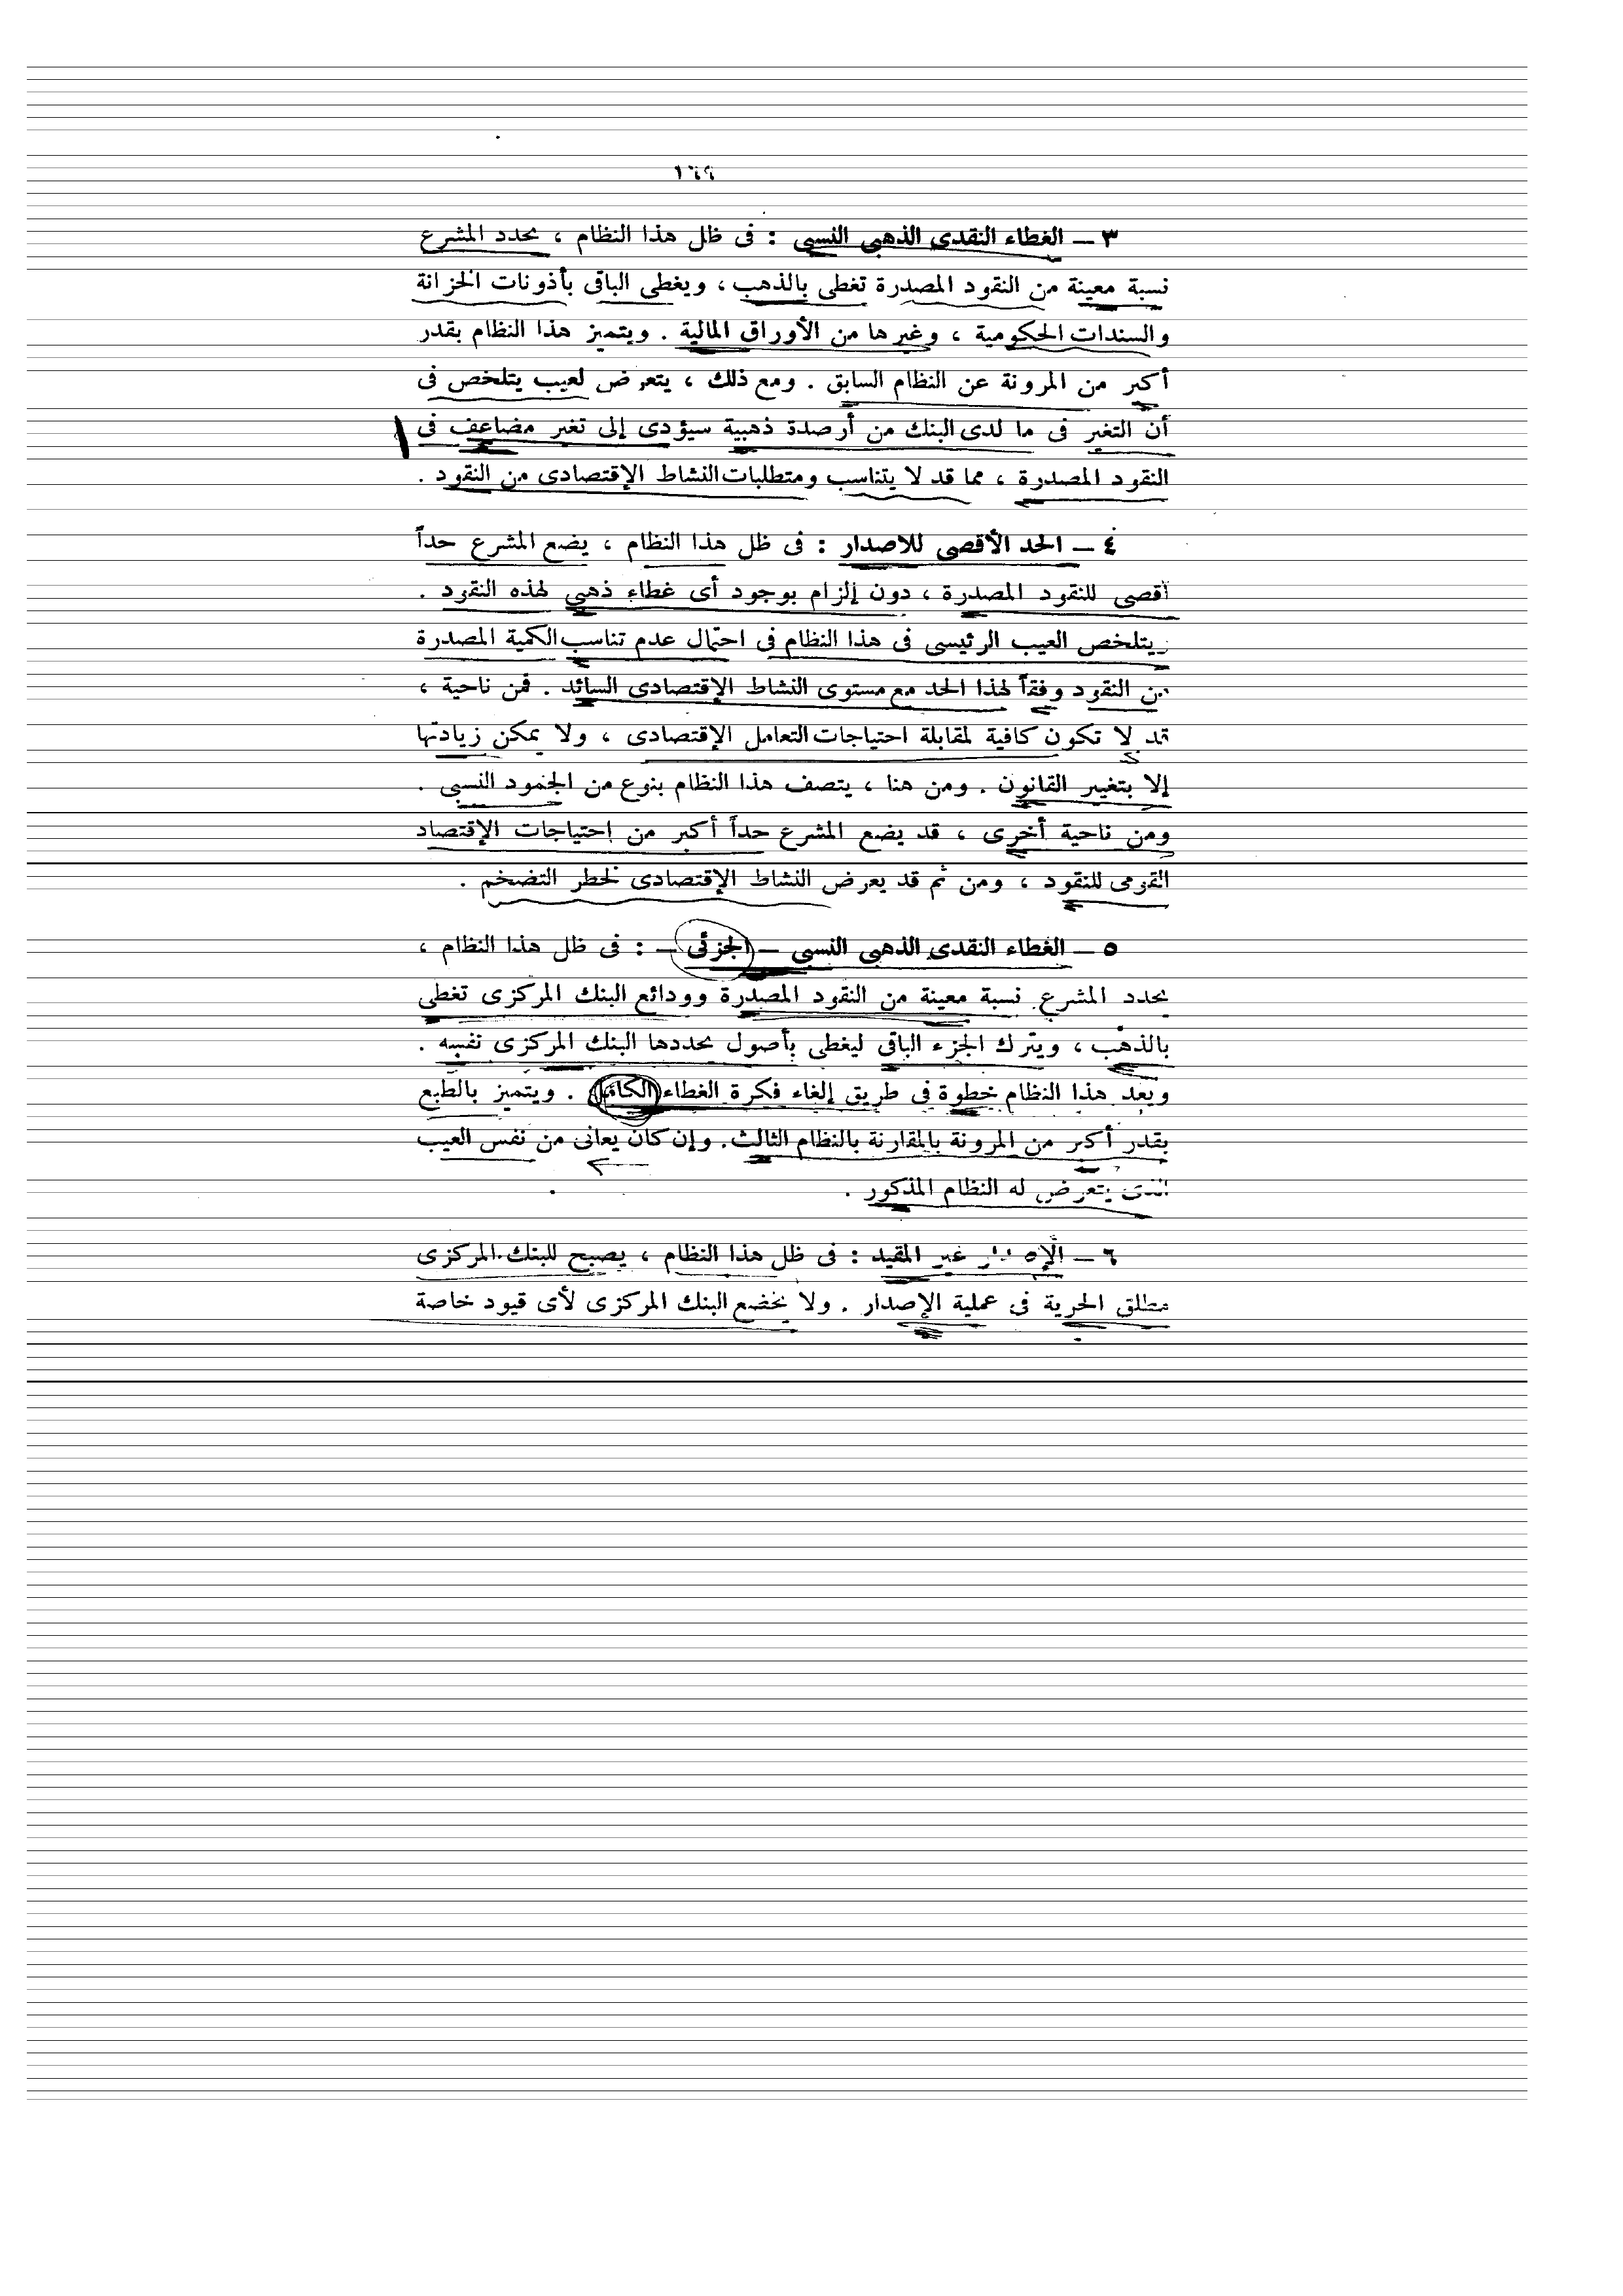 ١٦٩
٣ – الغطاء النقدى الذهبى النسبى : فى ظل هذا النظام ، يحدد المشرع
نسبة معينة من النقود المصدرة تغطى بالذهب ، ويغطى الباقى بأذونات الخزانة
والسندات الحكومية ، وغيرها من الأوراق المالية . ويتميز هذا النظام بقدر
أكبر من المرونة عن النظام السابق . ومع ذلك ، يتعرض لعيب يتلخص فى
أن التغير فى ما لدى البنك من أرصدة ذهبية سيؤدى إلى تغير مضاعف فى
النقود المصدرة ، مما قد لا يتناسب ومتطلبات النشاط الإقتصادى من النقود .
٤ – الحد الأقصى للاصدار : فى ظل هذا النظام ، يضع المشرع حداً
أقصى للنقود المصدرة ، دون إلزام بوجود أى غطاء ذهبى لهذه النقود .
ويتلخص العيب الرئيسى فى هذا النظام فى احتمال عدم تناسب الكمية المصدرة
من النقود وفقاً لهذا الحد مع مستوى النشاط الإقتصادى السائد . فمن ناحية ،
قد لا تكون كافية لمقابلة احتياجات التعامل الإقتصادى ، ولا يمكن زيادتها
إلا بتغيير القانون . ومن هنا ، يتصف هذا النظام بنوع من الجمود النسبى .
ومن ناحية أخرى ، قد يضع المشرع حداً أكبر من إحتياجات الإقتصاد
القومى للنقود ، ومن ثم قد يعرض النشاط الإقتصادى لخطر التضخم .
٥ – الغطاء النقدى الذهبى النسبى – الجزئى – : فى ظل هذا النظام ،
يحدد المشرع نسبة معينة من النقود المصدرة وودائع البنك المركزى تغطى
بالذهب ، ويترك الجزء الباقى ليغطى بأصول يحددها البنك المركزى نفسه .
ويعد هذا النظام خطوة فى طريق إلغاء فكرة الغطاء الكامل . ويتميز بالطبع
بقدر أكبر من المرونة بالمقارنة بالنظام الثالث . وإن كان يعانى من نفس العيب
الذى يتعرض له النظام المذكور .
٦ – الإصدار غير المقيد : فى ظل هذا النظام ، يصبح للبنك المركزى
مطلق الحرية فى عملية الإصدار . ولا يخضع البنك المركزى لأى قيود خاصة